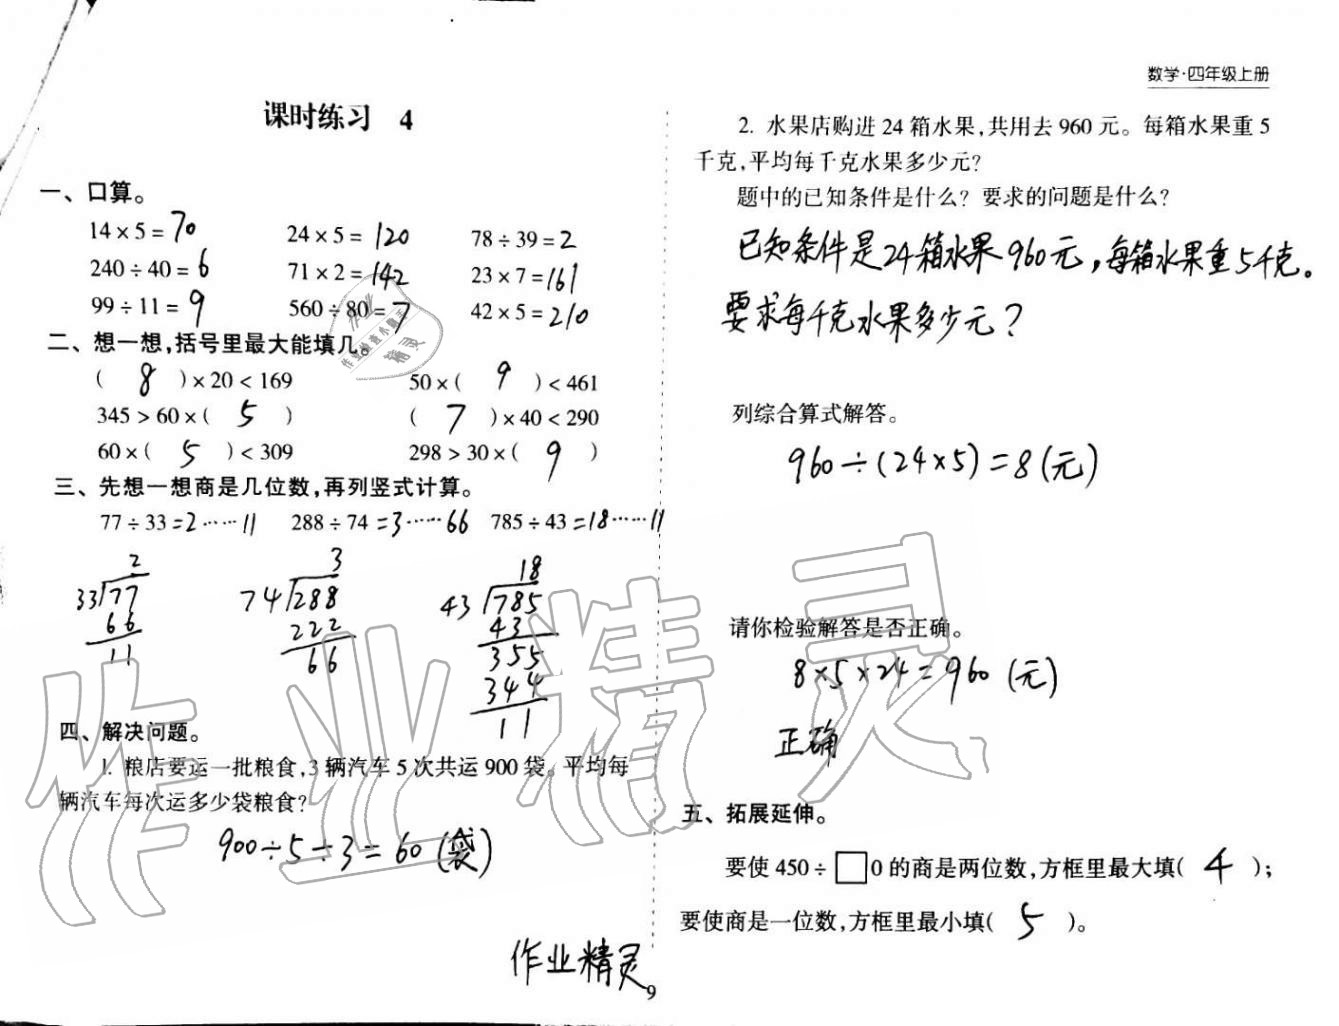 数学·四年级上册
课时练习 4
一、口算。
14×5=70 24×5=120 78÷39=2
240÷40=6 71×2=142 23×7=161
99÷11=9 560÷80=7 42×5=210
二、想一想,括号里最大能填几。
( 8 )×20<169 50×( 9 )<461
345>60×( 5 ) ( 7 )×40<290
60×( 5 )<309 298>30×( 9 )
三、先想一想商是几位数,再列竖式计算。
77÷33=2……11 288÷74=3……66 785÷43=18……11
2 3 18
33 77 74 288 43 785
66 222 43
11 66 355
344
11
四、解决问题。
1. 粮店要运一批粮食,3辆汽车5次共运900袋。平均每
辆汽车每次运多少袋粮食?
900÷5÷3=60(袋)
作业精灵
9
2. 水果店购进24箱水果,共用去960元。每箱水果重5
千克,平均每千克水果多少元?
题中的已知条件是什么? 要求的问题是什么?
已知条件是24箱水果960元,每箱水果重5千克。
要求每千克水果多少元?
列综合算式解答。
960÷(24×5)=8(元)
请你检验解答是否正确。
8×5×24=960(元)
正确
五、拓展延伸。
要使450÷□0的商是两位数,方框里最大填( 4 );
要使商是一位数,方框里最小填( 5 )。
作业精灵